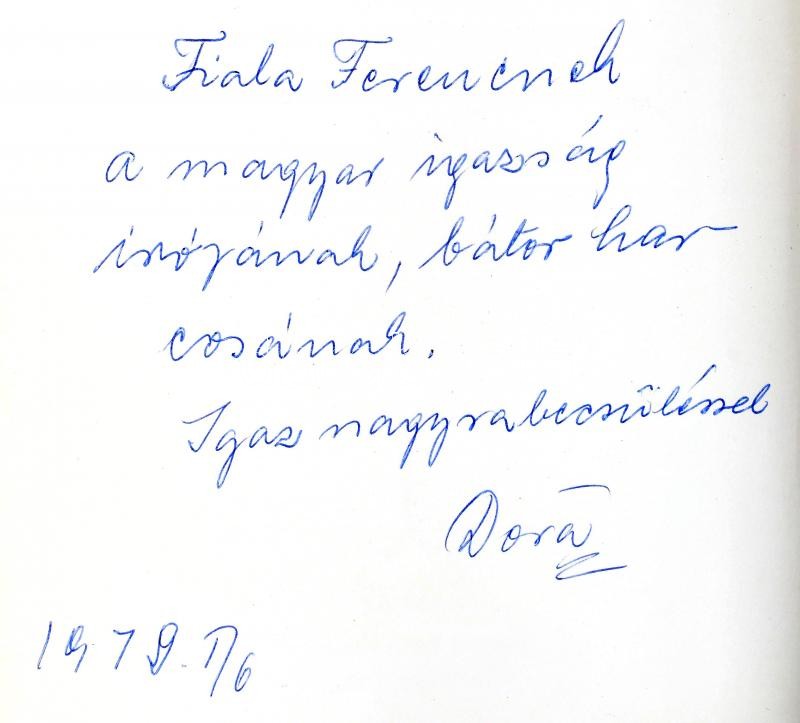 Fiala Ferencnek
a magyar igazság
írójának, bátor har
cosának.
Igaz nagyrabecsüléssel
Dorá
1979.